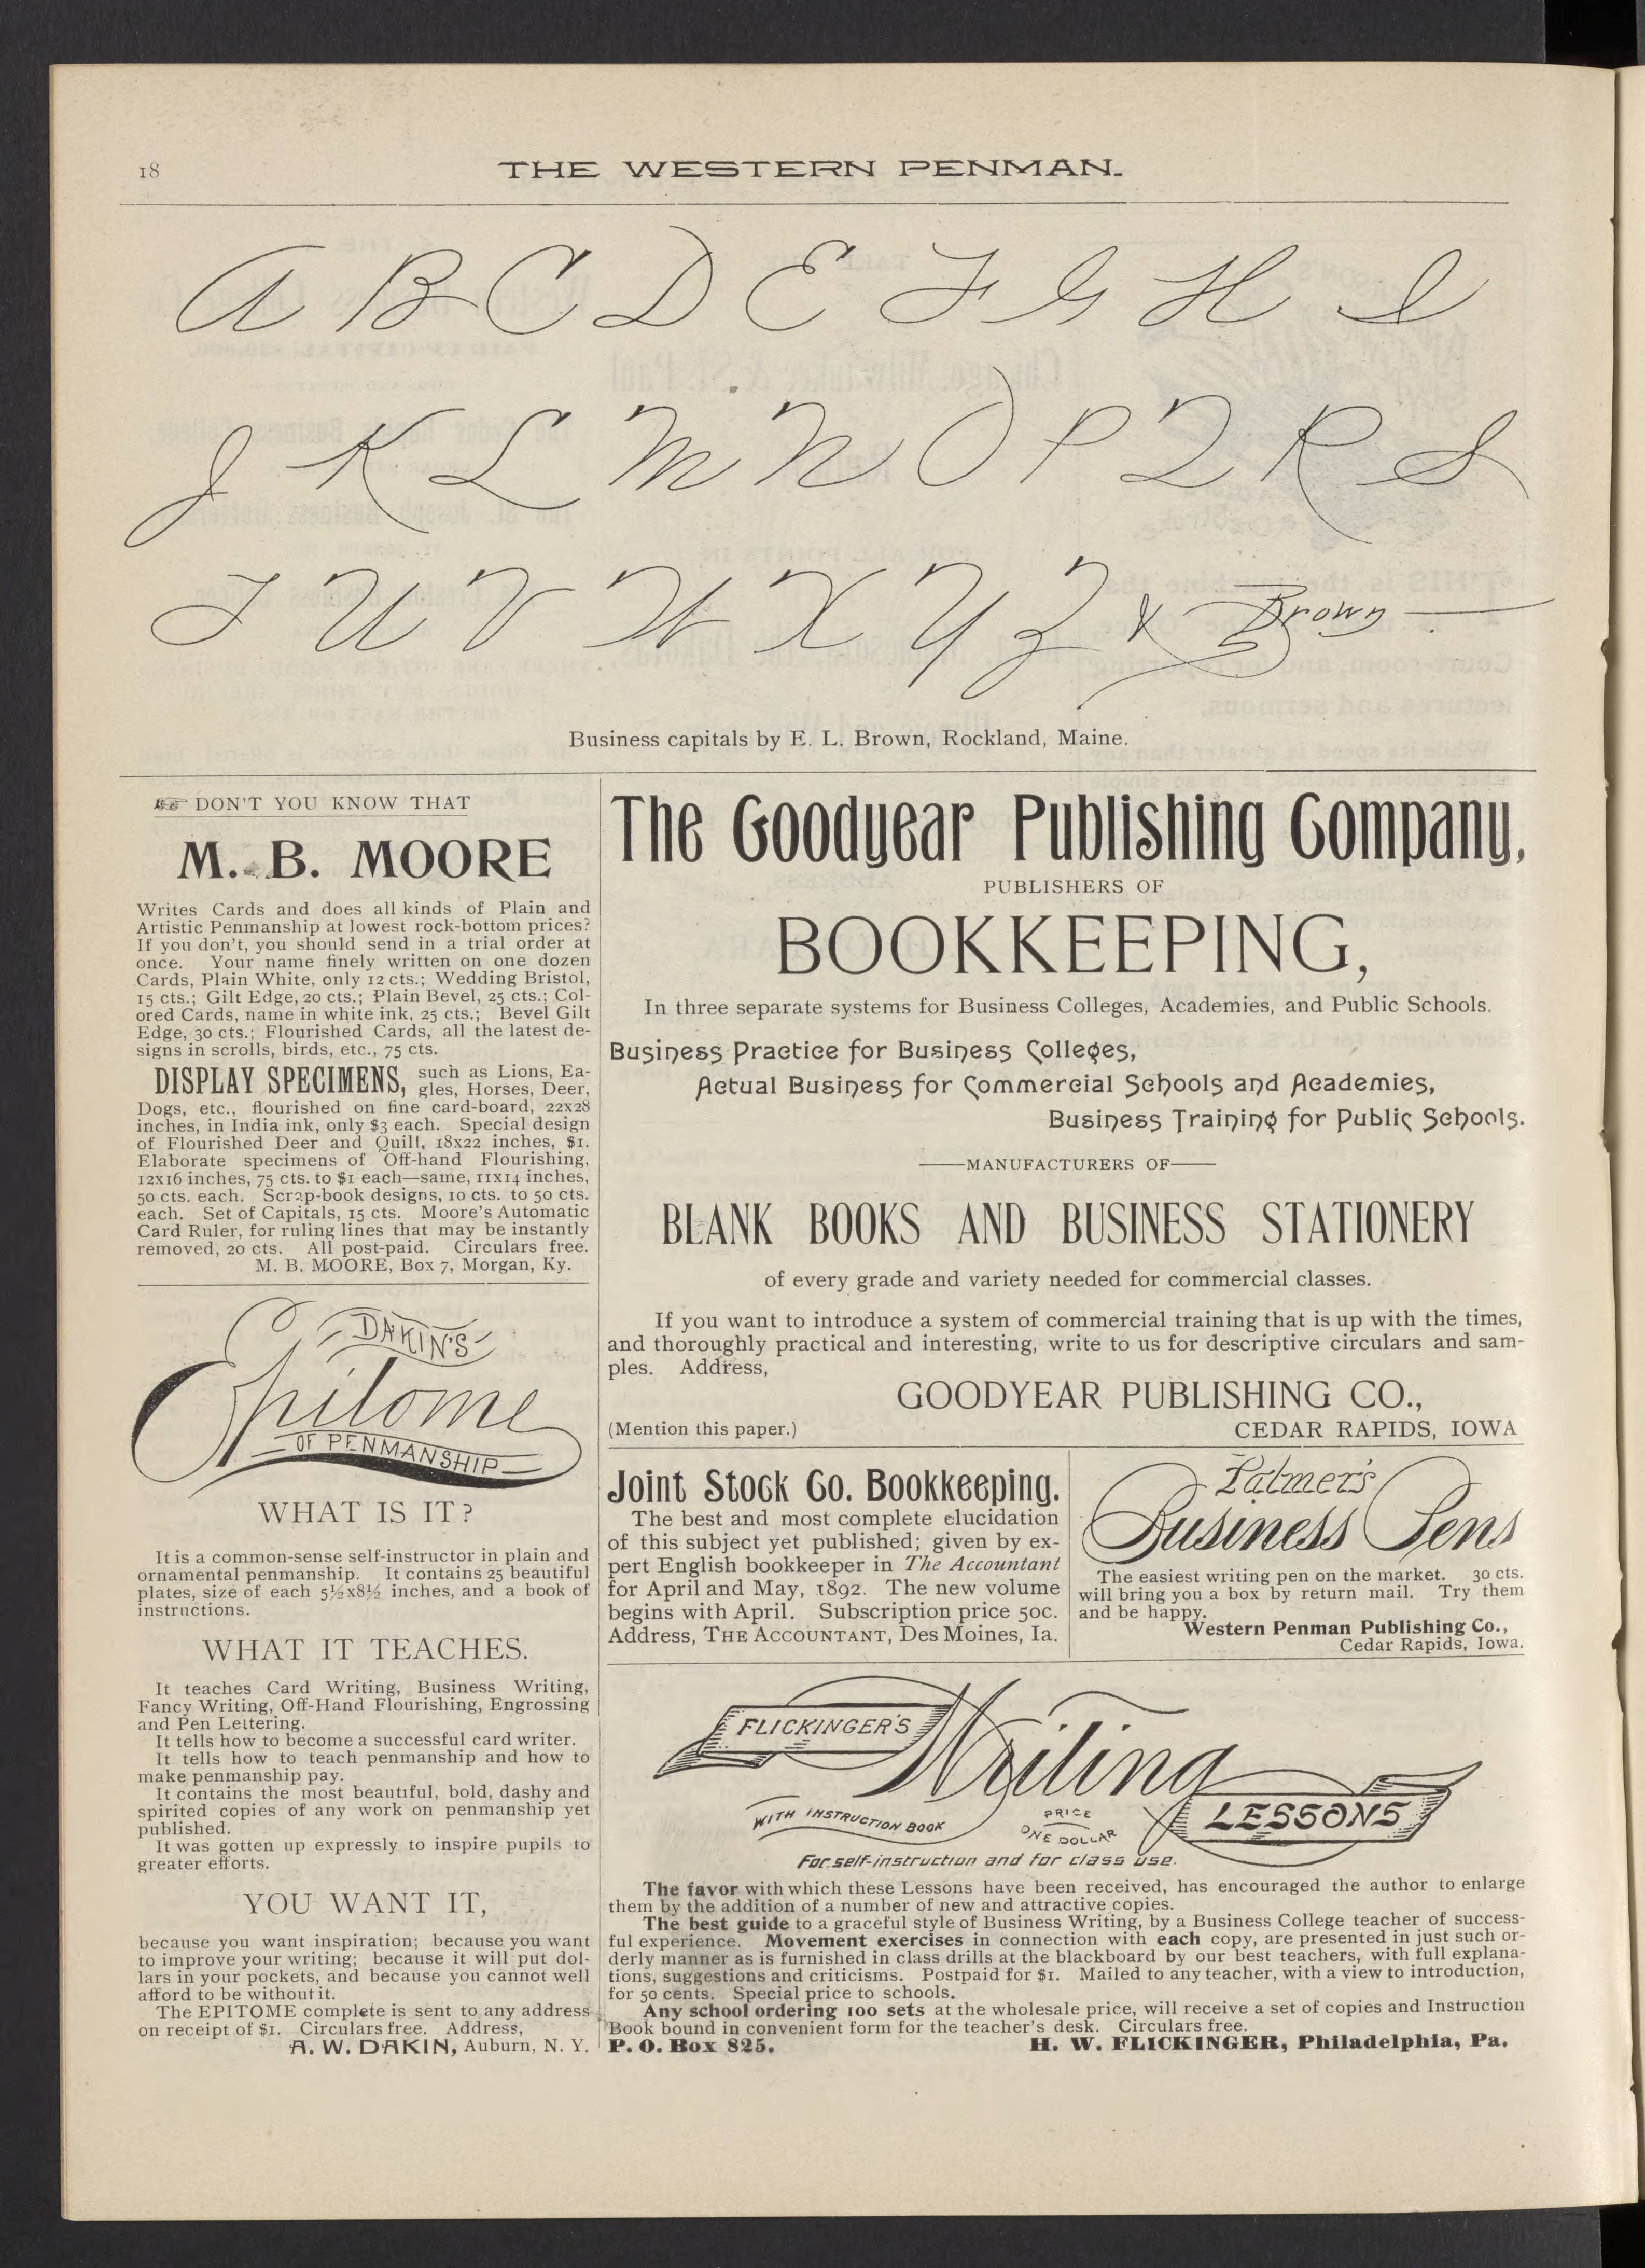 18
THE WESTERN PENMAN.
A B C D E F G H I
J K L M N O P Q R S
T U V W X Y Z & Brown
Business capitals by E. L. Brown, Rockland, Maine.
☞ DON'T YOU KNOW THAT
M. B. MOORE
Writes Cards and does all kinds of Plain and
Artistic Penmanship at lowest rock-bottom prices?
If you don't, you should send in a trial order at
once. Your name finely written on one dozen
Cards, Plain White, only 12 cts.; Wedding Bristol,
15 cts.; Gilt Edge, 20 cts.; Plain Bevel, 25 cts.; Col-
ored Cards, name in white ink, 25 cts.; Bevel Gilt
Edge, 30 cts.; Flourished Cards, all the latest de-
signs in scrolls, birds, etc., 75 cts.
DISPLAY SPECIMENS, such as Lions, Ea-
gles, Horses, Deer,
Dogs, etc., flourished on fine card-board, 22x28
inches, in India ink, only $3 each. Special design
of Flourished Deer and Quill, 18x22 inches, $1.
Elaborate specimens of Off-hand Flourishing,
12x16 inches, 75 cts. to $1 each—same, 11x14 inches,
50 cts. each. Scrap-book designs, 10 cts. to 50 cts.
each. Set of Capitals, 15 cts. Moore's Automatic
Card Ruler, for ruling lines that may be instantly
removed, 20 cts. All post-paid. Circulars free.
M. B. MOORE, Box 7, Morgan, Ky.
DAKIN'S
Epitome
OF PENMANSHIP
WHAT IS IT?
It is a common-sense self-instructor in plain and
ornamental penmanship. It contains 25 beautiful
plates, size of each 5½x8½ inches, and a book of
instructions.
WHAT IT TEACHES.
It teaches Card Writing, Business Writing,
Fancy Writing, Off-Hand Flourishing, Engrossing
and Pen Lettering.
It tells how to become a successful card writer.
It tells how to teach penmanship and how to
make penmanship pay.
It contains the most beautiful, bold, dashy and
spirited copies of any work on penmanship yet
published.
It was gotten up expressly to inspire pupils to
greater efforts.
YOU WANT IT,
because you want inspiration; because you want
to improve your writing; because it will put dol-
lars in your pockets, and because you cannot well
afford to be without it.
The EPITOME complete is sent to any address
on receipt of $1. Circulars free. Address,
A. W. DAKIN, Auburn, N. Y.
The Goodyear Publishing Company,
PUBLISHERS OF
BOOKKEEPING,
In three separate systems for Business Colleges, Academies, and Public Schools.
Business Practice for Business Colleges,
Actual Business for Commercial Schools and Academies,
Business Training for Public Schools.
——MANUFACTURERS OF——
BLANK BOOKS AND BUSINESS STATIONERY
of every grade and variety needed for commercial classes.
If you want to introduce a system of commercial training that is up with the times,
and thoroughly practical and interesting, write to us for descriptive circulars and sam-
ples. Address,
GOODYEAR PUBLISHING CO.,
(Mention this paper.) CEDAR RAPIDS, IOWA
Joint Stock Co. Bookkeeping.
The best and most complete elucidation
of this subject yet published; given by ex-
pert English bookkeeper in The Accountant
for April and May, 1892. The new volume
begins with April. Subscription price 50c.
Address, THE ACCOUNTANT, Des Moines, Ia.
Palmer's
Business Pens
The easiest writing pen on the market. 30 cts.
will bring you a box by return mail. Try them
and be happy.
Western Penman Publishing Co.,
Cedar Rapids, Iowa.
FLICKINGER'S
Writing
LESSONS
WITH INSTRUCTION BOOK
PRICE
ONE DOLLAR
For self-instruction and for class use.
The favor with which these Lessons have been received, has encouraged the author to enlarge
them by the addition of a number of new and attractive copies.
The best guide to a graceful style of Business Writing, by a Business College teacher of success-
ful experience. Movement exercises in connection with each copy, are presented in just such or-
derly manner as is furnished in class drills at the blackboard by our best teachers, with full explana-
tions, suggestions and criticisms. Postpaid for $1. Mailed to any teacher, with a view to introduction,
for 50 cents. Special price to schools.
Any school ordering 100 sets at the wholesale price, will receive a set of copies and Instruction
Book bound in convenient form for the teacher's desk. Circulars free.
P. O. Box 825. H. W. FLICKINGER, Philadelphia, Pa.